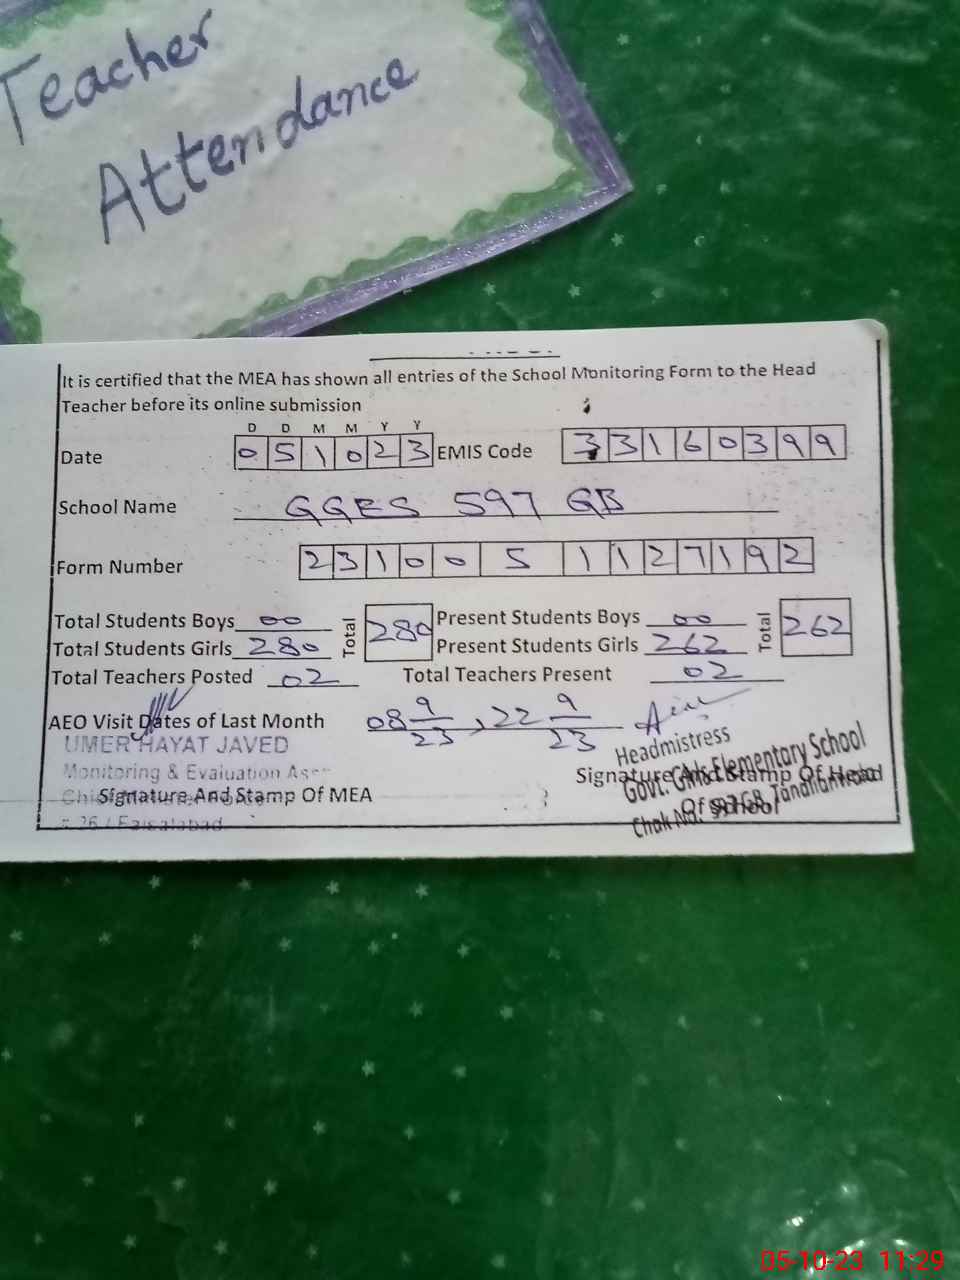 Teacher
Attendance
It is certified that the MEA has shown all entries of the School Monitoring Form to the Head
Teacher before its online submission
D D M M Y Y
Date 0 5 1 0 2 3 EMIS Code 3 3 1 6 0 3 9 9
School Name GGES 597 GB
Form Number 2 3 1 0 0 5 1 1 2 7 1 9 2
Total Students Boys 00 Total 280 Present Students Boys 00 Total 262
Total Students Girls 280 Present Students Girls 262
Total Teachers Posted 02 Total Teachers Present 02
AEO Visit Dates of Last Month 08 9/23, 22 9/23
UMER HAYAT JAVED
Monitoring & Evaluation
Signature And Stamp Of MEA
26 / Faisalabad
Headmistress
Govt. Girls Elementary School
Signature And Stamp Of Head
Of School
Chak No. 597 GB
05-10-23 11:29